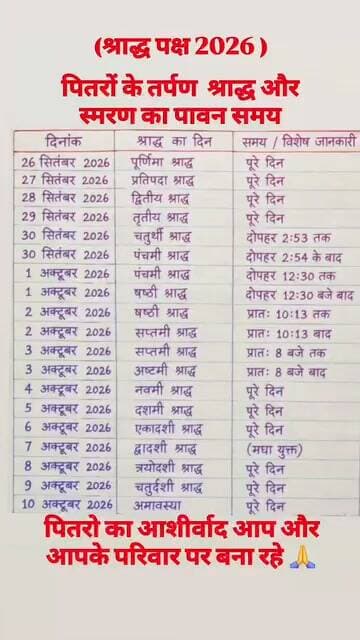 (श्राद्ध पक्ष 2026 )
पितरों के तर्पण श्राद्ध और
स्मरण का पावन समय
दिनांक श्राद्ध का दिन समय / विशेष जानकारी
26 सितंबर 2026 पूर्णिमा श्राद्ध पूरे दिन
27 सितंबर 2026 प्रतिपदा श्राद्ध पूरे दिन
28 सितंबर 2026 द्वितीय श्राद्ध पूरे दिन
29 सितंबर 2026 तृतीय श्राद्ध पूरे दिन
30 सितंबर 2026 चतुर्थी श्राद्ध दोपहर 2:53 तक
30 सितंबर 2026 पंचमी श्राद्ध दोपहर 2:54 के बाद
1 अक्टूबर 2026 पंचमी श्राद्ध दोपहर 12:30 तक
1 अक्टूबर 2026 षष्ठी श्राद्ध दोपहर 12:30 बजे बाद
2 अक्टूबर 2026 षष्ठी श्राद्ध प्रातः 10:13 तक
2 अक्टूबर 2026 सप्तमी श्राद्ध प्रातः 10:13 बाद
3 अक्टूबर 2026 सप्तमी श्राद्ध प्रातः 8 बजे तक
3 अक्टूबर 2026 अष्टमी श्राद्ध प्रातः 8 बजे बाद
4 अक्टूबर 2026 नवमी श्राद्ध पूरे दिन
5 अक्टूबर 2026 दशमी श्राद्ध पूरे दिन
6 अक्टूबर 2026 एकादशी श्राद्ध पूरे दिन
7 अक्टूबर 2026 द्वादशी श्राद्ध (मघा युक्त)
8 अक्टूबर 2026 त्रयोदशी श्राद्ध पूरे दिन
9 अक्टूबर 2026 चतुर्दशी श्राद्ध पूरे दिन
10 अक्टूबर 2026 अमावस्या पूरे दिन
पितरो का आशीर्वाद आप और
आपके परिवार पर बना रहे 🙏